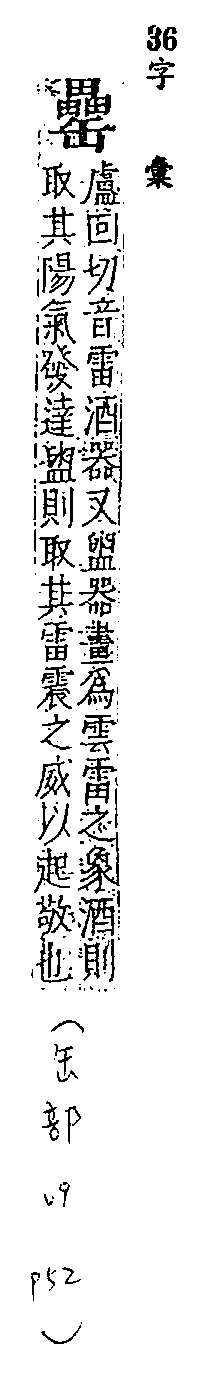 36
字彙
罍
盧回切音雷酒器又盥器畫為雲雷之象酒則
取其陽氣發達盥則取其雷震之威以起敬也
(缶部 v9 p52)